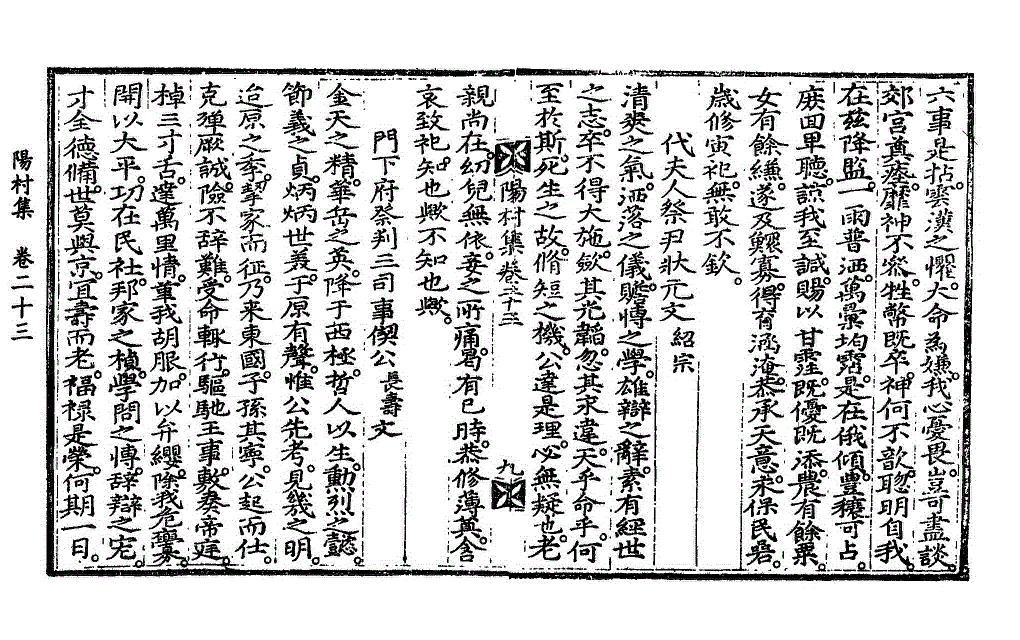 六事是拈。雲漢之懼。大命為嫌。我心憂畏。豈可盡談。
郊宮奠瘞。靡神不宗。牲幣旣卒。神何不歆。聦明自我。
在玆降監。一雨普洒。萬彙均霑。是在俄傾。豊穰可占。
庶回卑聽。諒我至誠。賜以甘霔。旣優旣添。農有餘粟。
女有餘縑。遂及鰥寡。得育涵淹。恭承天意。永保民嵒。
歲修寅祀。無敢不欽。
代夫人祭尹狀元文 紹宗
淸爽之氣。洒落之儀。贍愽之學。雄辯之辭。素有經世
之志。卒不得大施。歛其光韜。忽其求違。天乎命乎。何
至於斯。死生之故。脩短之機。公違是理。必無疑也。老
親尙在。幼兒無依。妾之所痛。曷有已時。恭修薄奠。含
哀致祀。知也歟不知也歟。
門下府祭判三司事偰公 長壽 文
金天之精。華岳之英。降于西極。哲人以生。勳烈之懿。
節義之貞。炳炳世羙。于原有聲。惟公先考。見幾之明。
迨原之季。挈家而征。乃来東國。子孫其寧。公起而仕。
克殫厥誠。險不辞難。受命輙行。驅馳王事。敷奏帝庭。
棹三寸舌。達萬里情。革我胡服。加以弁纓。除我危舋。
開以大平。功在民社。邦家之楨。學問之愽。辞辯之宏。
才全德脩。世莫與京。宜壽而老。福祿是榮。何期一日。
陽村集卷之二十三
九
陽村集 卷二十三